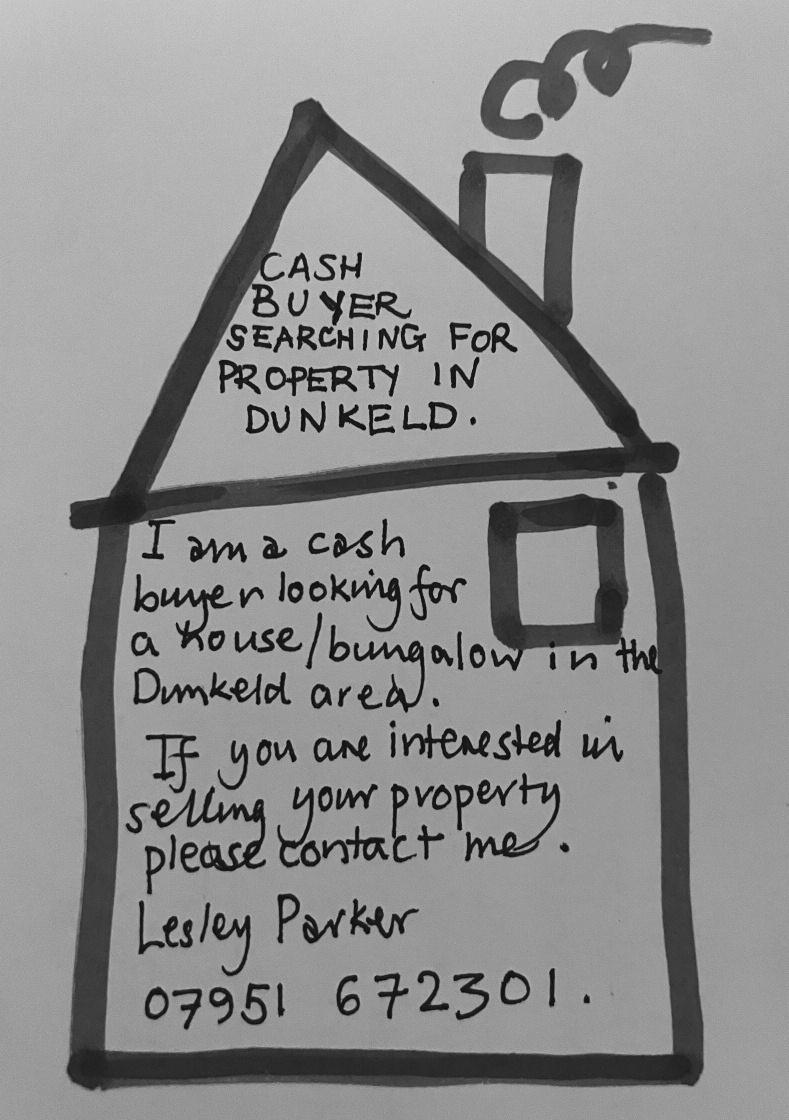 CASH
BUYER
SEARCHING FOR
PROPERTY IN
DUNKELD.
I am a cash
buyer looking for
a house/bungalow in the
Dunkeld area.
If you are interested in
selling your property
please contact me.
Lesley Parker
07951 672301.